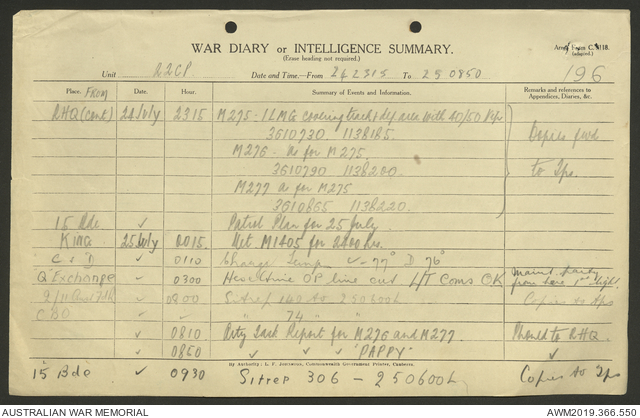 WAR DIARY or INTELLIGENCE SUMMARY.
(Erase heading not required.)
Army Form C. 2118.
(adapted.)
196
Unit R2CP Date and Time—From 242315 To 250850
Place. FROM Date. Hour. Summary of Events and Information. Remarks and references to Appendices, Diaries, &c.
RHQ (cont) 24 July 2315 M275 - 1 LMG covering track & def area with 40/50
3610730 1138185 Copies fwd
M276 - as for M275
3610790 1138200 to Tps.
M277 as for M275
3610855 1138220
15 Bde ✓ Patrol Plan for 25 July
KING 25 July 0015 Met. M1405 for 2400 hrs.
C & D ✓ 0110 Charge Temp C - 77° D 76°
Q Exchange ✓ 0300 OP line out L/T Coms OK maint. party from here 1st light.
0200 Sitrep 140 to 250600L Copies to Tps
CBO " 74 " "
✓ 0810 Arty Task Report for M276 and M277 Phoned to RHQ
✓ 0850 ✓ ✓ ✓ "PAPPY" ✓
By Authority: L. F. Johnston, Commonwealth Government Printer, Canberra.
15 Bde ✓ 0930 Sitrep 306 - 250600L Copies to Tps
AUSTRALIAN WAR MEMORIAL
AWM2019.366.550